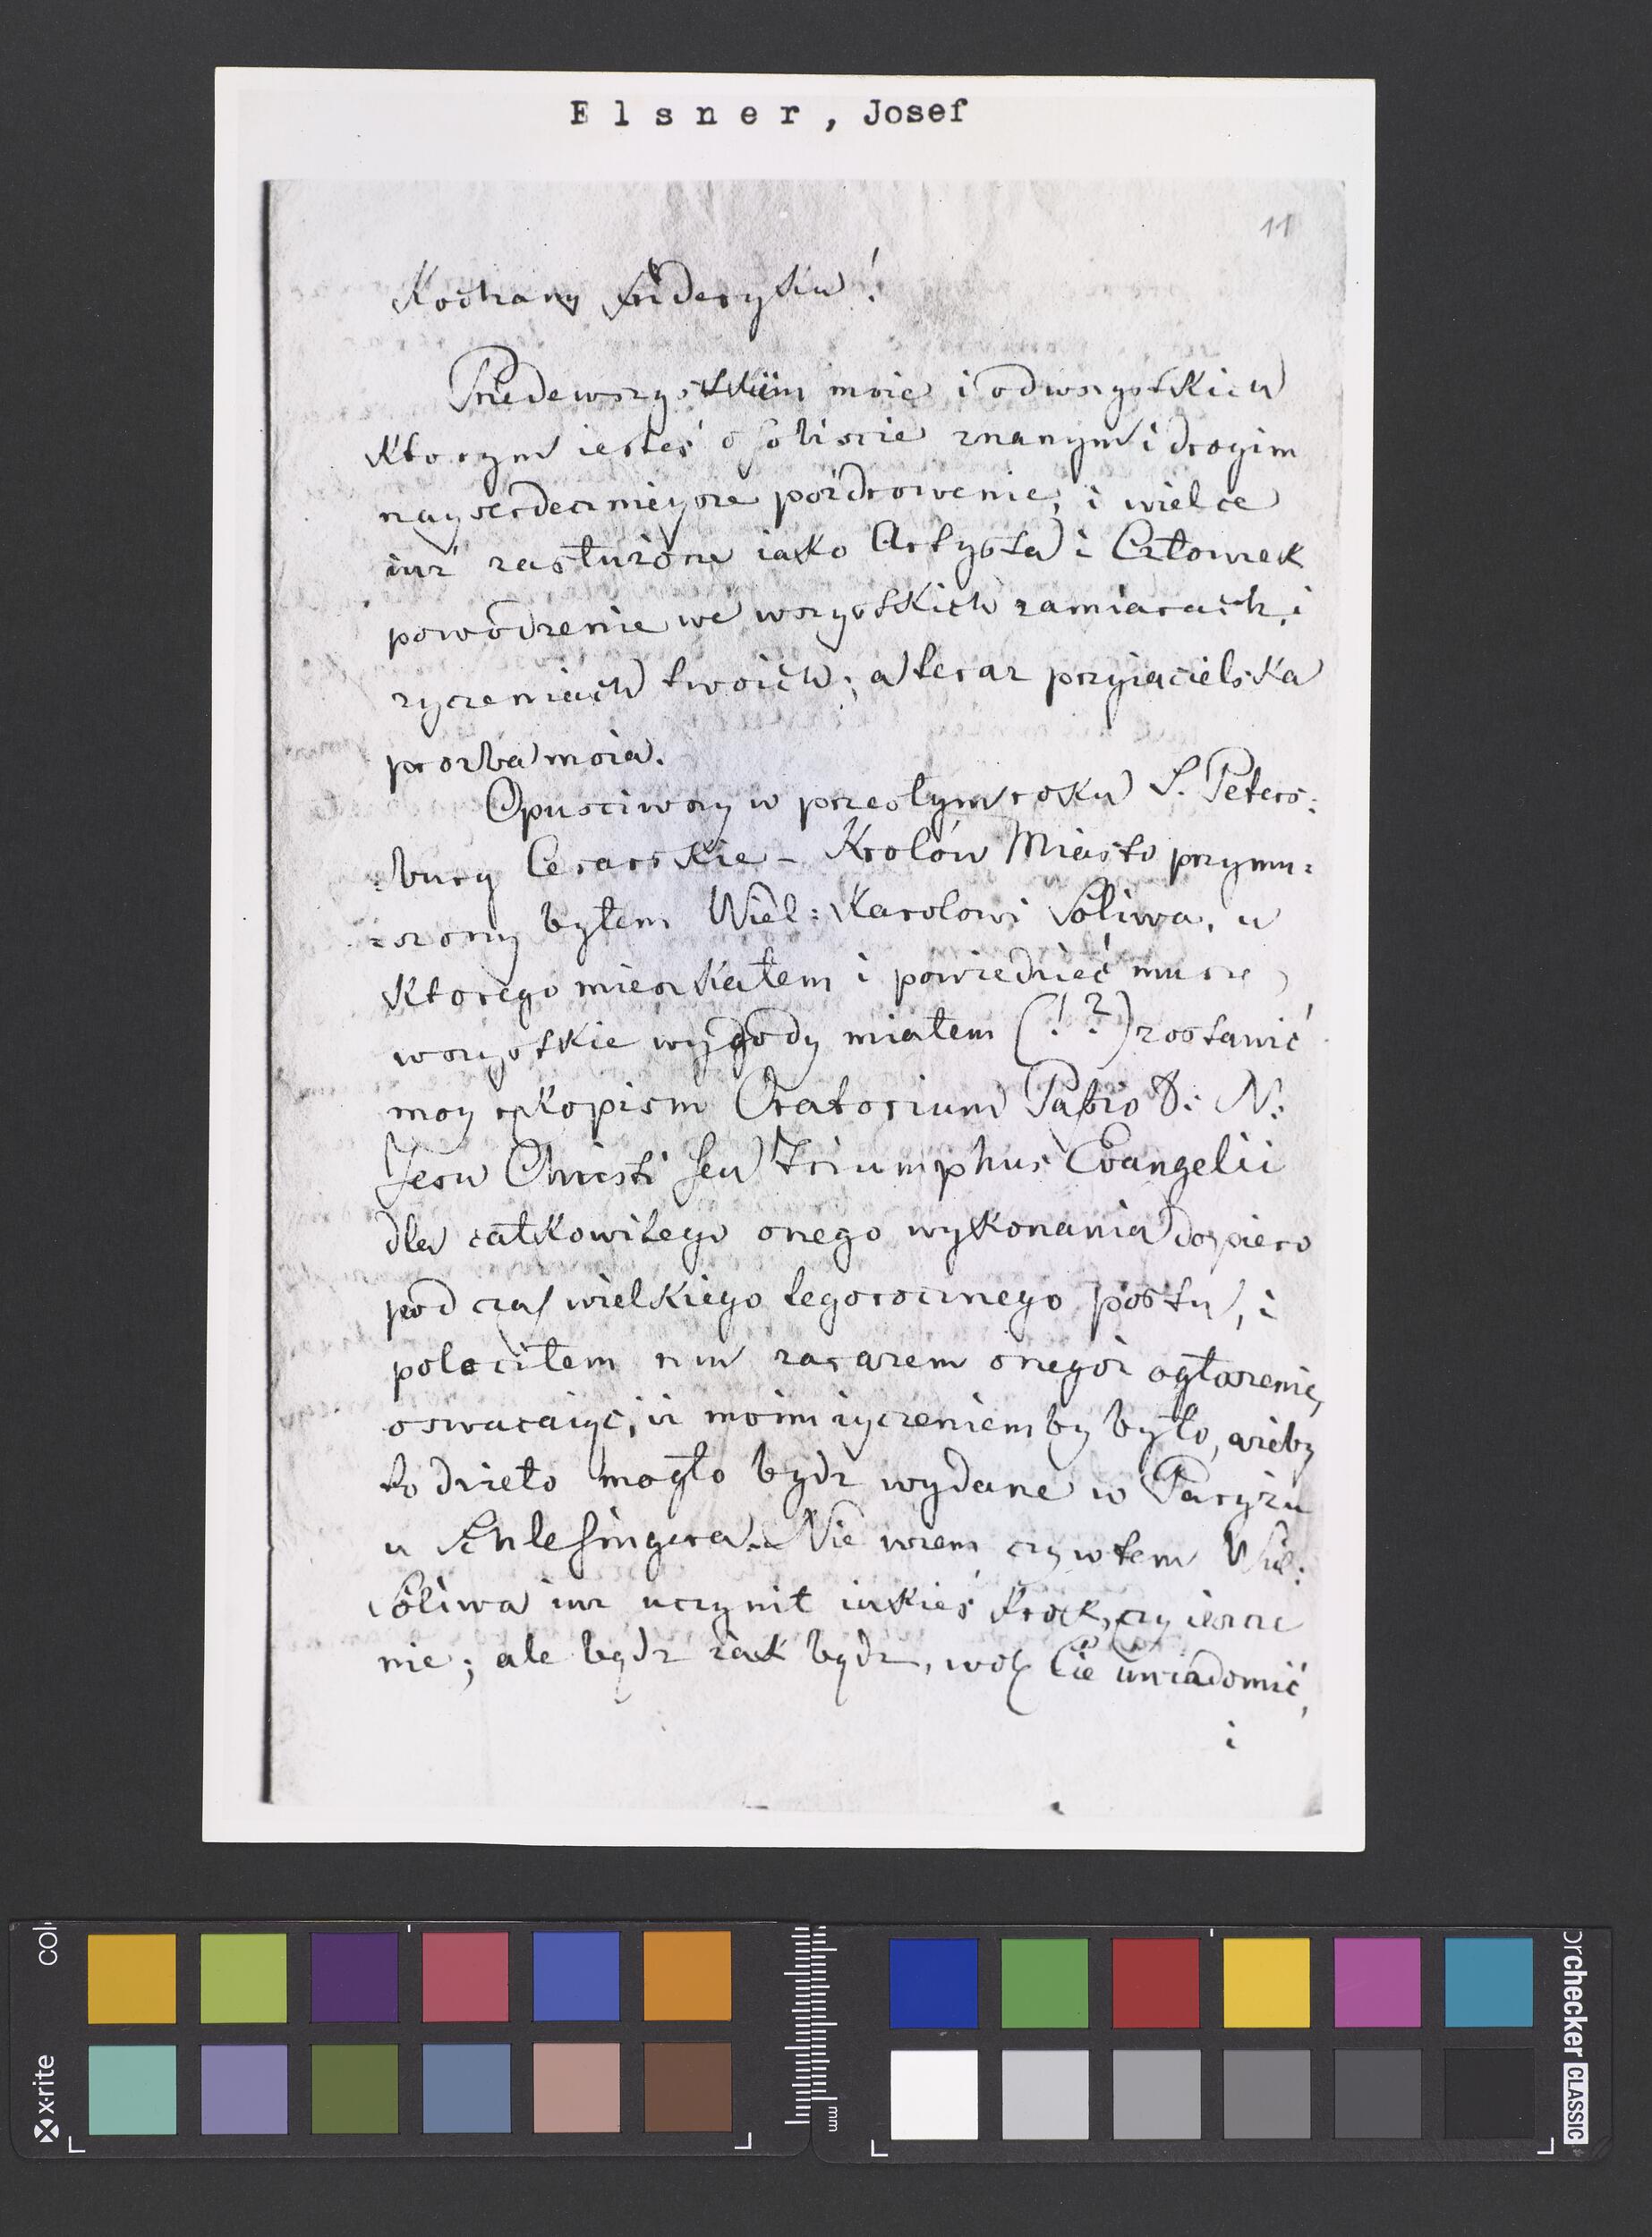 Elsner, Josef
11
Kochany Friderysiu!
Przedewszystkiim moie i odwszystkich
ktorym iesteś osobiscie znanym i drogim
nayserdecznieysze pozdrowienie, i wielce
iuż zasłużone iako Artysta i Człowiek
powodzenie we wszystkich zamiarach i
zyczeniach twoich; a teraz przyiacielska
prozba moia.
Opusciwszy w przeszlym roku S. Peters:
:burg Cesarskie - Krolów Miasto przymu:
:szony byłem Wiel: Karolowi Soliwa, u
ktorego mieszkałem i powiedzieć musze,
wszystkie wygody miałem (!?) zostawić
moy rękopism Oratorium Passio D: N:
Jesu Christi seu Triumphus Evangelii
dla całkowitego onego wykonania dopiero
pod czas wielkiego tegorocznego postu, i
poleciłem mu zarazem onegoż ogłoszenie,
oswiacaiąc, iż moim życzeniem by było, ażeby
to dzieło mogło bydz wydane w Paryżu
u Schlesingera. Nie wiem czy w tem Wiel:
Soliwa iuż uczynił iakieś krok, czy iescze
nie; ale bądz iak bądz, wolę Cie uwiadomić,
i
x-rite
mm
colorchecker CLASSIC